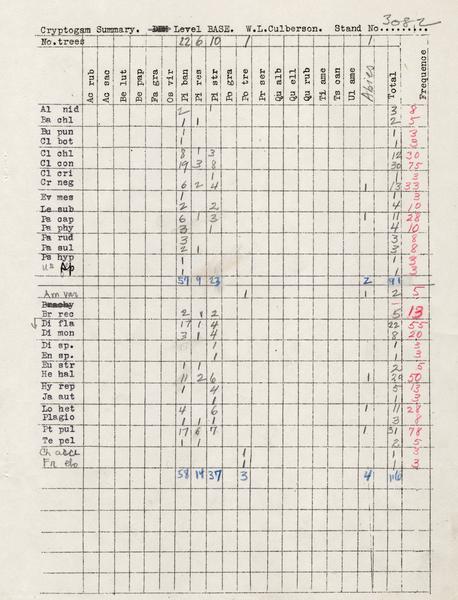 Cryptogam Summary. Level BASE. W.L.Culberson. Stand No......... 3082
No.trees 22 6 10 1 1
Ac rub Ac sac Be lut Be pap Fa gra Os vir Pi ban Pi res Pi str Po gra Po tre Pr ser Qu alb Qu ell Qu rub Ti ame Ts can Ul ame Abies Total Frequency
Al nid 2 1 3 8
Ba chl 1 1 2 5
Bu pun 1 1 3
Cl bot 1 1 3
Cl chl 8 1 3 12 30
Cl con 19 3 8 30 75
Cl cri 1 1 3
Cr neg 6 2 4 1 13 33
Ev mes 1 1 3
Le sub 2 2 4 10
Pa cap 6 1 3 1 11 28
Pa phy 3 1 4 10
Pa rud 3 3 8
Pa sul 2 1 3 8
Ps hyp 1 1 3
Us sp 1 1 3
57 9 23 2 91
Am var 1 1 2 5
Brachy
Br rec 2 1 2 5 13
Di fla 17 1 4 22 55
Di mon 3 1 4 8 20
Di sp. 1 1 3
En sp. 1 1 3
Eu str 1 1 2 5
He hal 11 2 6 1 20 50
Hy rep 1 4 5 13
Ja aut 1 1 3
Lo het 4 6 1 11 28
Plagio 1 1 1 3 8
Pt pul 17 6 7 1 31 78
Te pel 1 1 2 5
1 1 3
1 1 3
58 14 37 3 4 116